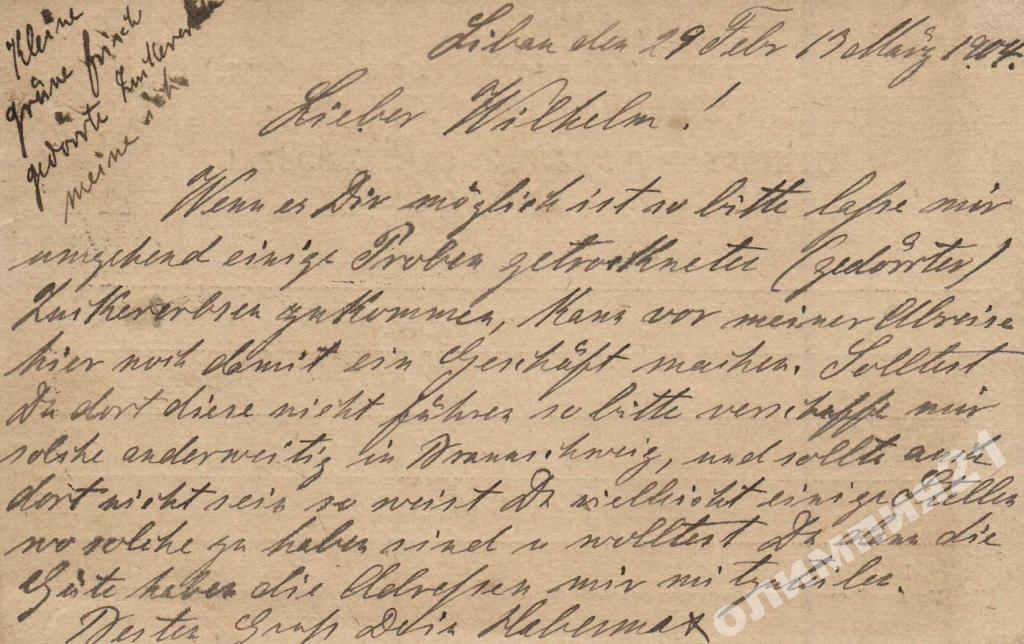 Kleine
grüne frisch
gedörrte Zuckererbsen
meine ich
Libau den 29 Febr 13 März 1904.
Lieber Wilhelm!
Wenn es Dir möglich ist so bitte lasse mir
umgehend einige Proben getrockneter (gedörrter)
Zuckererbsen zukommen, kann vor meiner Abreise
hier noch damit ein Geschäft machen. Solltest
Du dort diese nicht führen so bitte verschaffe mir
solche anderweitig in Braunschweig, und sollte auch
dort nicht sein so weist Du vielleicht einige Stellen
wo solche zu haben sind u wolltest Du dann die
Güte haben die Adressen mir mitzuteilen.
Besten Gruß Dein
ОЛИМПИЯ21